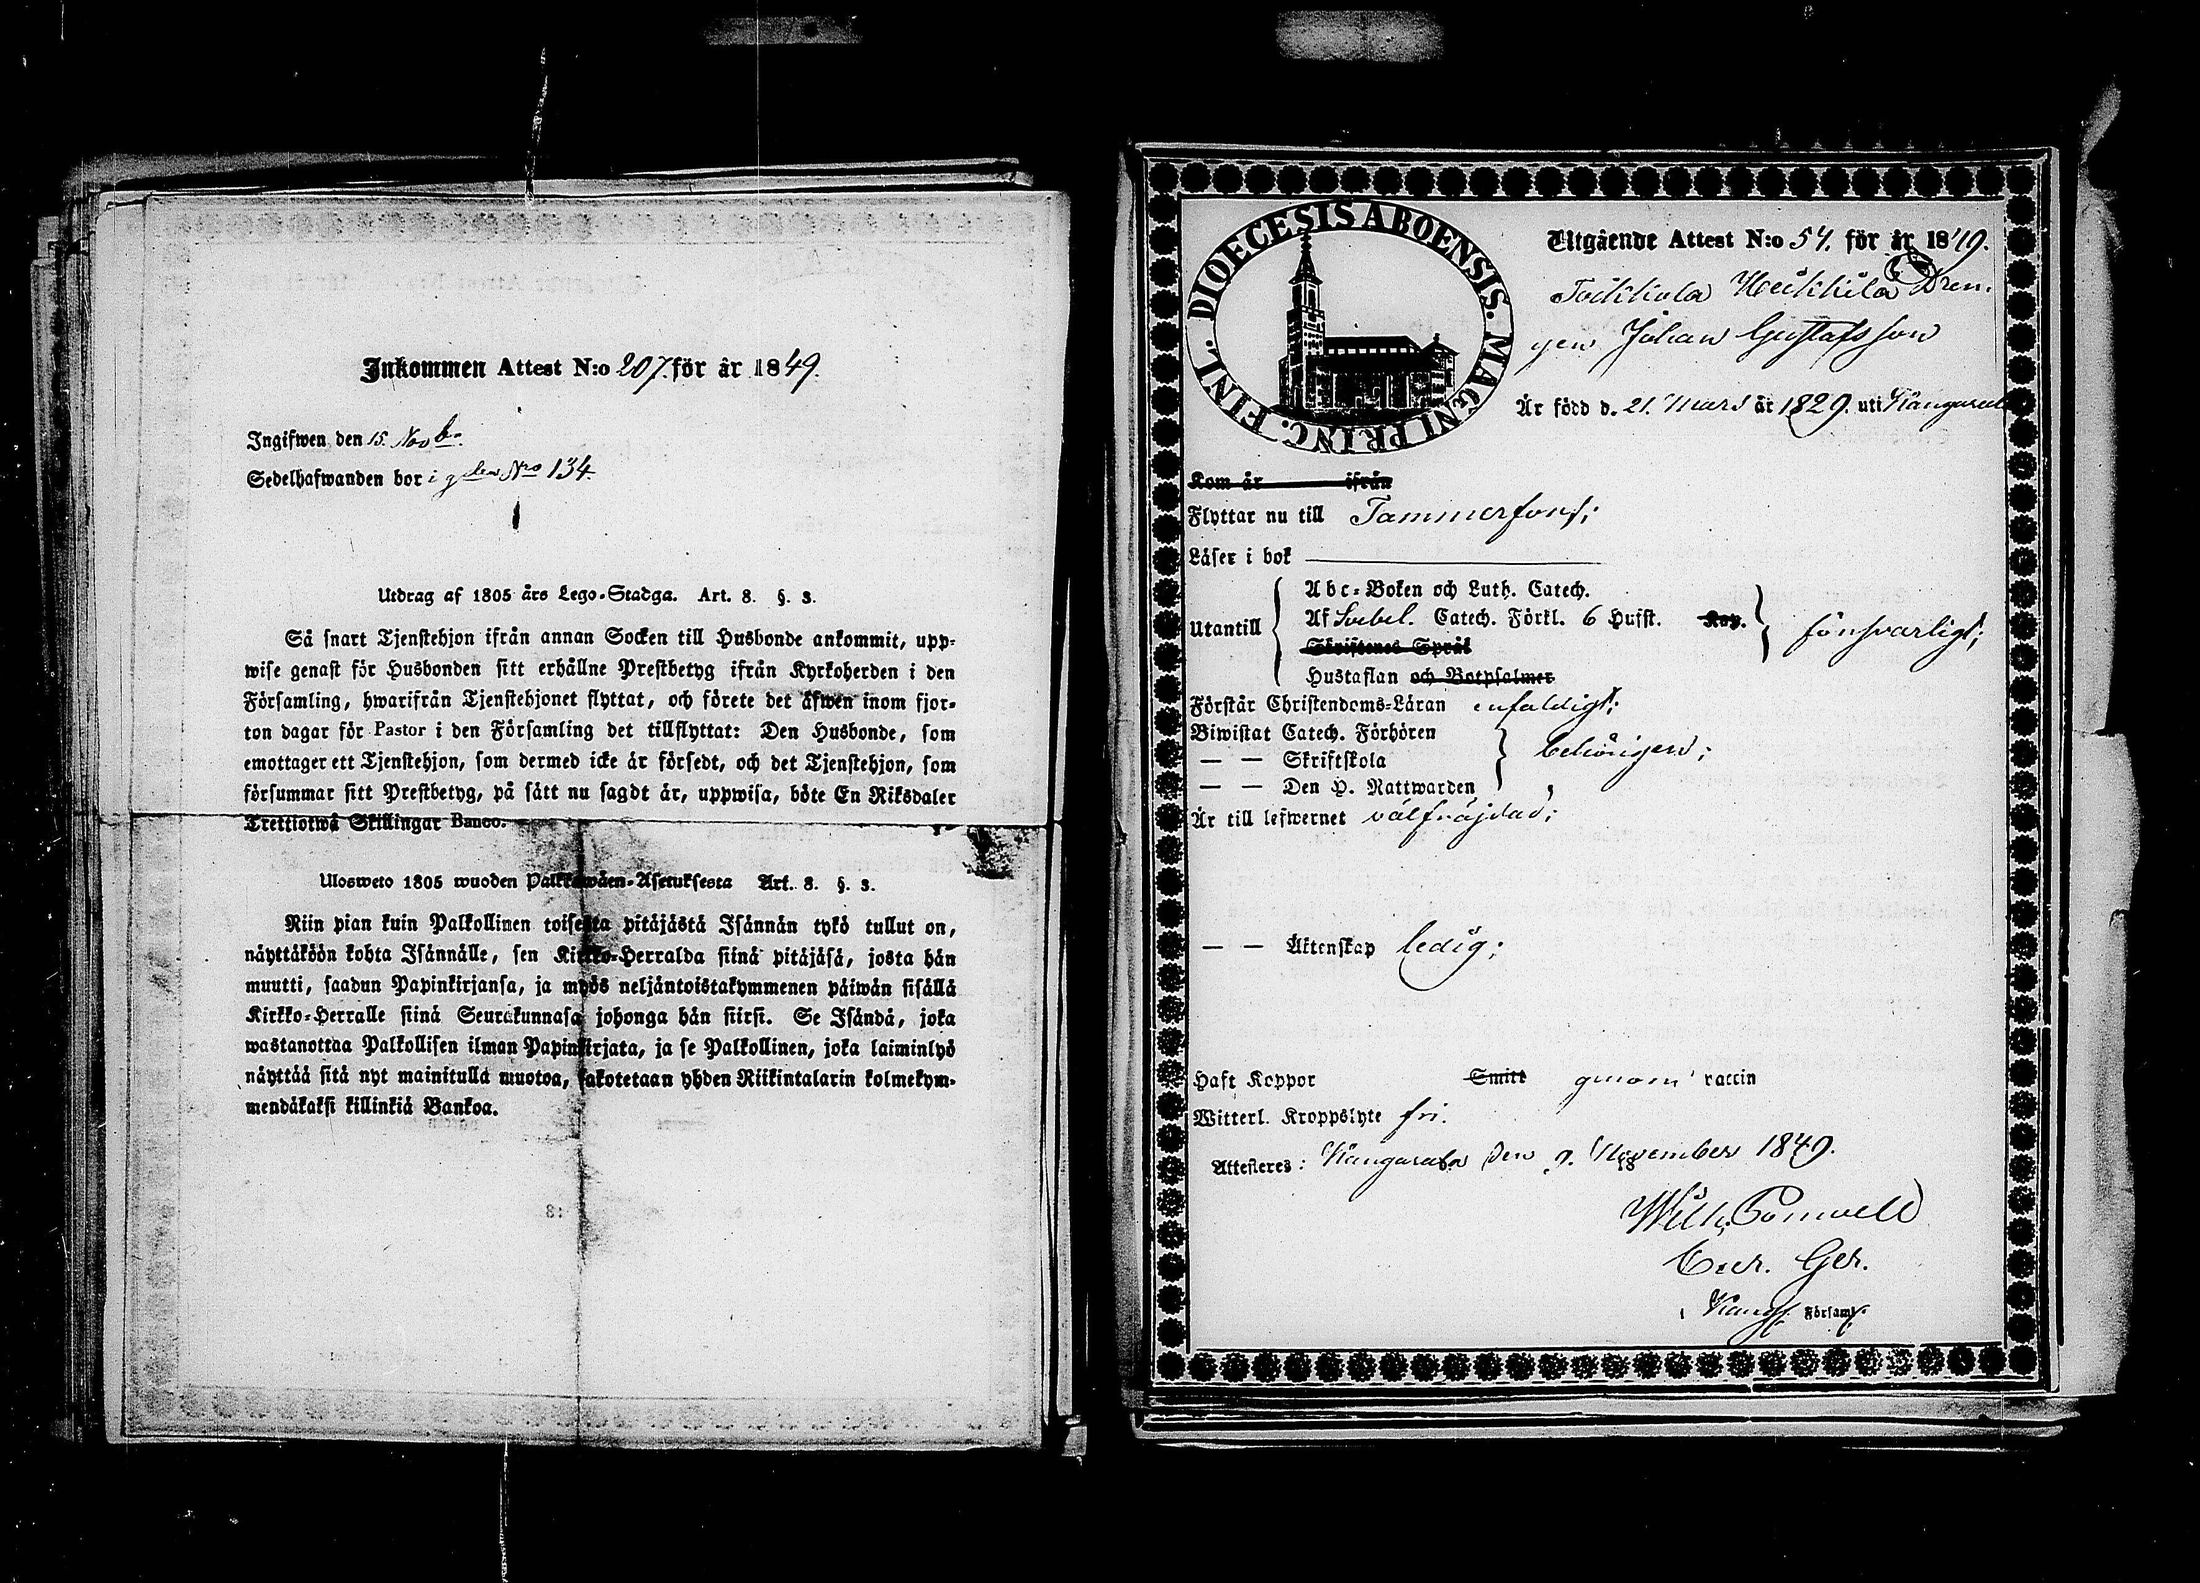 Inkommen Attest N:o 207. för år 1849.
Ingifwen den 15. Novb.
Sedelhafwanden bor i gden Nro 134.
Utdrag af 1805 års Lego-Stadga. Art. 8. §. 3.
Så snart Tjenstehjon ifrån annan Socken till Husbonde ankommit, upp-
wise genast för Husbonden sitt erhållne Prestbetyg ifrån Kyrkoherden i den
Församling, hwarifrån Tjenstehjonet flyttat, och förete det äfwen inom fjor-
ton dagar för Pastor i den Församling det tillflyttat: Den Husbonde, som
emottager ett Tjenstehjon, som dermed icke är försedt, och det Tjenstehjon, som
försummar sitt Prestbetyg, på sätt nu sagdt är, uppwisa, böte En Riksdaler
Trettiotwå Skillingar Banco.
Ulosweto 1805 wuoden Palkkawäen-Asetuksesta Art. 8. §. 3.
Niin pian kuin Palkollinen toisesta pitäjästä Isännän tykö tullut on,
näyttäköön kohta Isännälle, sen Kirkko-Herralda siinä pitäjäsä, josta hän
muutti, saadun Papinkirjansa, ja myös neljäntoistakymmenen päiwän sisällä
Kirkko-Herralle siinä Seurakunnasa johonga hän siirsi. Se Isändä, joka
wastanottaa Palkollisen ilman Papinkirjata, ja se Palkollinen, joka laiminlyö
näyttää sitä nyt mainitulla muotoa, sakotetaan yhden Riikintalarin kolmekym-
mendäkaksi killinkiä Bankoa.
DIOECESIS ABOENSIS. MAGNI PRINC. FINL.
Utgående Attest N:o 54. för år 1849.
Heikkilä Dren-
gen Johan Gustafsson
Är född d. 21. Mars år 1829. uti Kangasala
Kom år ifrån
Flyttar nu till Tammerfors;
Läser i bok
Utantill
Abc-Boken och Luth. Catech.
Af Svebel. Catech. Förkl. 6 Hufst. Kap.
Skriftenes Språk
Hustaflan och Botpsalmer
försvarligt;
Förstår Christendoms-Läran enfaldigt;
Biwistat Catech. Förhören
— — Skriftskola
— — Den H. Nattwarden
behörigen;
Är till lefwernet välfräjdad;
— — Äktenskap ledig;
Haft Koppor Smitt genom vaccin
Witterl. Kroppslyte fri.
Attesteras: Kangasala den 9. November 1849.
Wilh.
Församl.